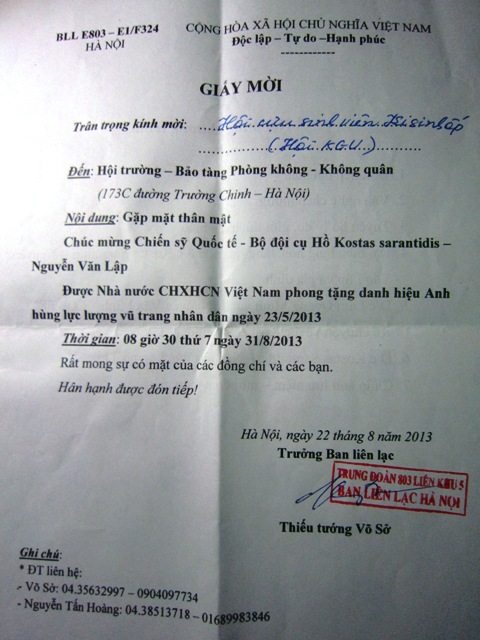 BLL E803 – E1/F324
HÀ NỘI
CỘNG HÒA XÃ HỘI CHỦ NGHĨA VIỆT NAM
Độc lập – Tự do –Hạnh phúc
------------
GIẤY MỜI
Trân trọng kính mời: ....Hội cựu sinh viên Kisinhốp
................(Hội KGU..)...........
Đến: Hội trường – Bảo tàng Phòng không - Không quân
(173C đường Trường Chinh – Hà Nội)
Nội dung: Gặp mặt thân mật
Chúc mừng Chiến sỹ Quốc tế - Bộ đội cụ Hồ Kostas sarantidis –
Nguyễn Văn Lập
Được Nhà nước CHXHCN Việt Nam phong tặng danh hiệu Anh
hùng lực lượng vũ trang nhân dân ngày 23/5/2013
Thời gian: 08 giờ 30 thứ 7 ngày 31/8/2013
Rất mong sự có mặt của các đồng chí và các bạn.
Hân hạnh được đón tiếp!
Hà Nội, ngày 22 tháng 8 năm 2013
Trưởng Ban liên lạc
TRUNG ĐOÀN 803 LIÊN KHU 5
BAN LIÊN LẠC HÀ NỘI
Thiếu tướng Võ Sở
Ghi chú:
* ĐT liên hệ:
- Võ Sở: 04.35632997 – 0904097734
- Nguyễn Tấn Hoàng: 04.38513718 – 01689983846